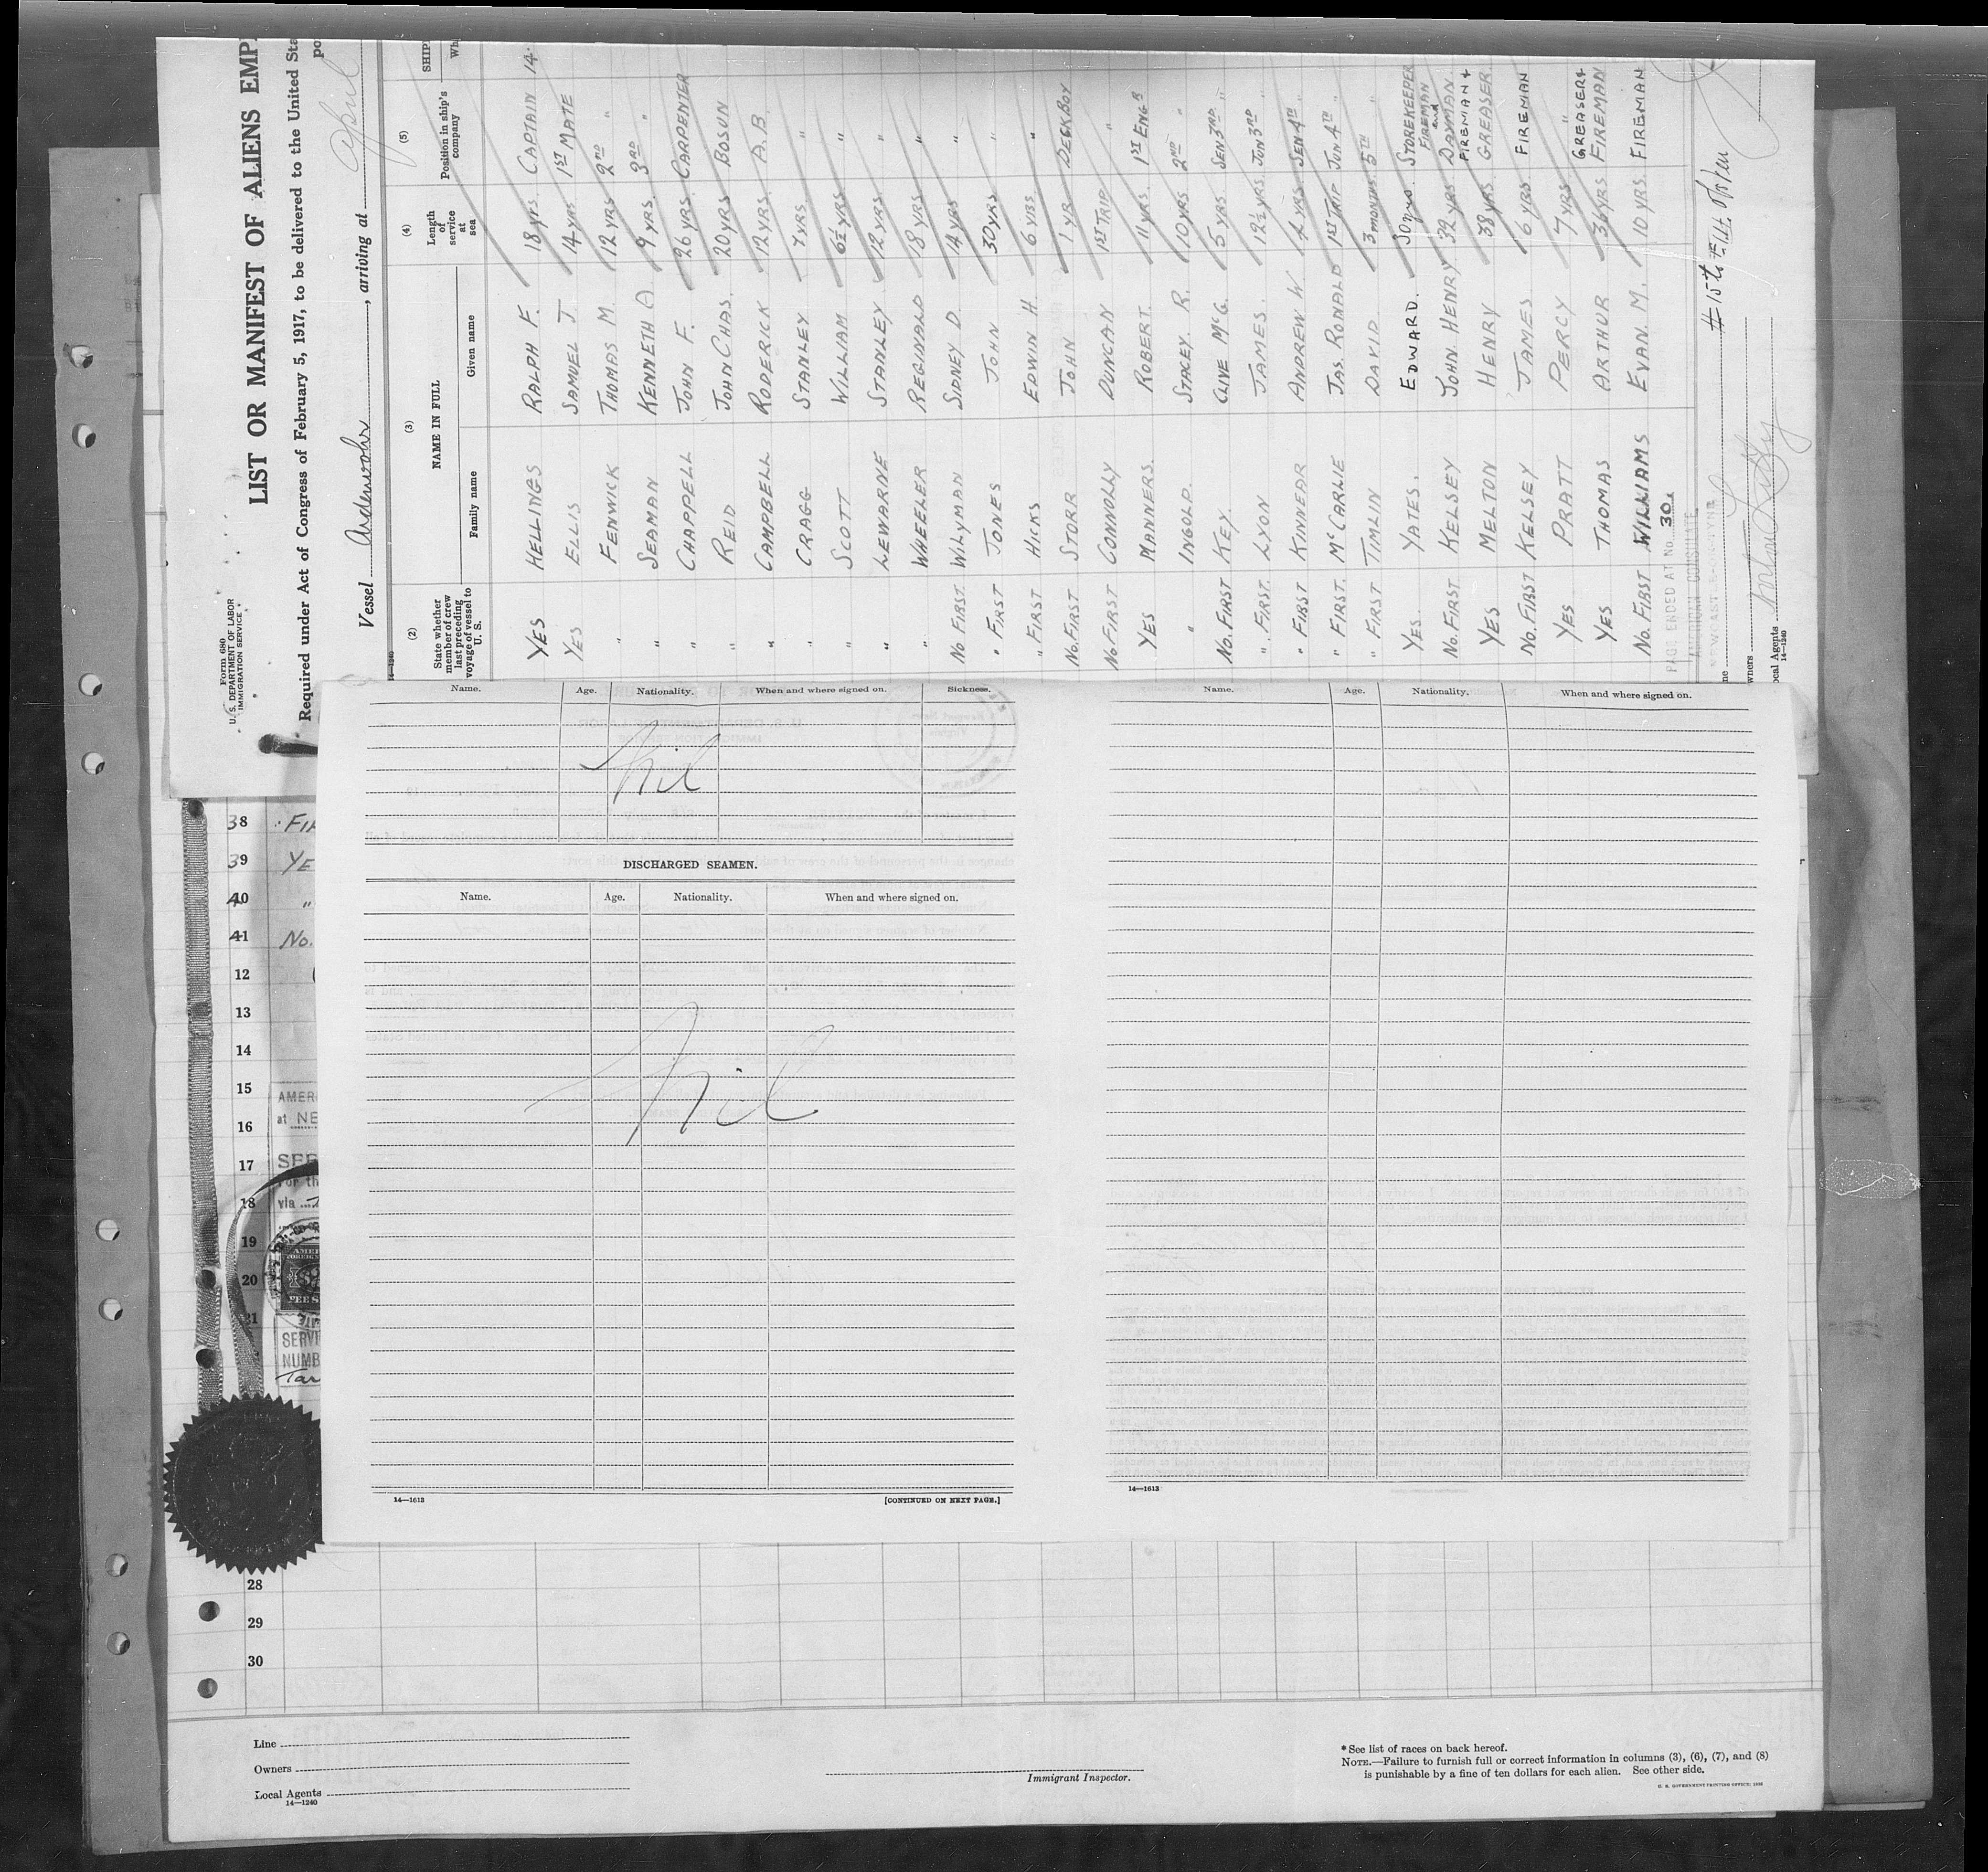 Form 680
U. S. DEPARTMENT OF LABOR
IMMIGRATION SERVICE
LIST OR MANIFEST OF ALIENS EMP
Required under Act of Congress of February 5, 1917, to be delivered to the United Sta
Vessel Ardenvohr, arriving at
14—1240
(2) (3) (4) (5)
State whether member of crew last preceding voyage of vessel to U. S.
NAME IN FULL
Family name Given name
Length of service at sea
Position in ship's company
SHIP
Wh
YES HELLINGS RALPH F. 18 yrs. CAPTAIN 14.
YES ELLIS SAMUEL J. 14 yrs 1ST MATE
" FENWICK THOMAS M. 12 YRS 2ND "
" SEAMAN KENNETH A. 9 YRS. 3RD "
" CHAPPELL JOHN F. 26 YRS. CARPENTER
" REID JOHN CHAS. 20 YRS BOSUN
" CAMPBELL RODERICK 12 YRS. A.B.
" CRAGG STANLEY 7 YRS "
" SCOTT WILLIAM 6½ YRS "
" LEWARNE STANLEY 12 YRS. "
" WHEELER REGINALD 18 YRS "
No FIRST WILYMAN SIDNEY D. 14 YRS "
" FIRST JONES JOHN 30 YRS "
" FIRST HICKS EDWIN H. 6 YRS "
No. FIRST STORR JOHN 1 YR DECKBOY
No FIRST CONNOLLY DUNCAN 1ST TRIP "
YES MANNERS. ROBERT. 11 YRS. 1ST ENGR
" INGOLD. STACEY R. 10 YRS 2ND "
No. FIRST KEY. CLIVE McG. 5 YRS. SEN 3RD "
" FIRST. LYON JAMES. 12½ YRS. JUN 3RD "
" FIRST KINNEAR ANDREW W. 2 YRS. SEN 4TH "
" FIRST. McCARLIE JAS. RONALD 1ST TRIP JUN 4TH "
" FIRST TIMLIN DAVID. 3 MONTHS. 5TH "
YES. YATES. EDWARD. 30 yrs. STOREKEEPER
No. FIRST KELSEY JOHN. HENRY. 32 YRS. FIREMAN and DAYMAN
YES MELTON HENRY 38 YRS. FIREMAN & GREASER
No. FIRST KELSEY JAMES 6 YRS. FIREMAN
YES PRATT PERCY 7 YRS "
YES THOMAS ARTHUR 36 YRS GREASER & FIREMAN
No. FIRST WILLIAMS EVAN. M. 10 YRS. FIREMAN
PAGE ENDED AT No. 30.
AMERICAN CONSULATE
NEWCASTLE-ON-TYNE
Local Agents
14—1240
Name. Age. Nationality. When and where signed on. Sickness.
Nil
DISCHARGED SEAMEN.
Name. Age. Nationality. When and where signed on.
Nil
14—1613 [CONTINUED ON NEXT PAGE.]
Name. Age. Nationality. When and where signed on.
14—1613
38 FI
39 YE
40 "
41 No.
12
13
14
15
AMER
at NE
16
17
SER
For th
18
via
19
20
FEE S
21
SERVI
NUMB
28
29
30
Line
Owners
Local Agents
14—1240
Immigrant Inspector.
* See list of races on back hereof.
NOTE.—Failure to furnish full or correct information in columns (3), (6), (7), and (8)
is punishable by a fine of ten dollars for each alien. See other side.
U. S. GOVERNMENT PRINTING OFFICE: